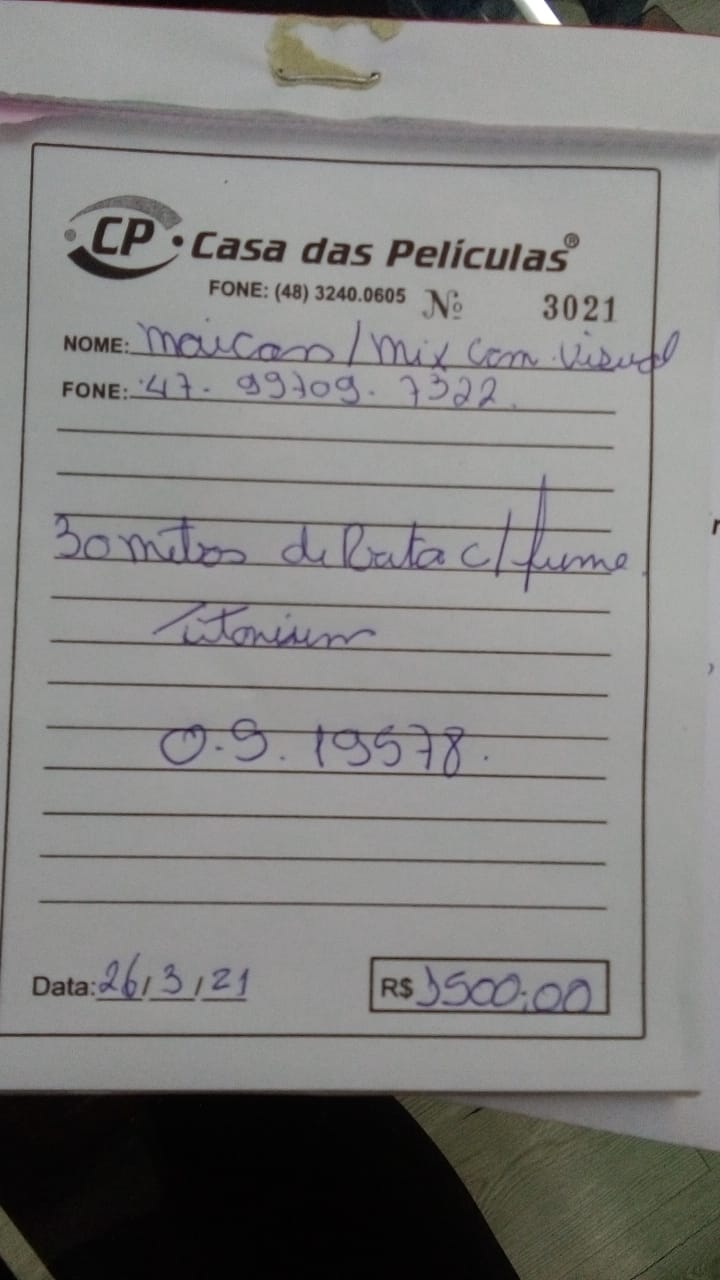 CP • Casa das Películas®
FONE: (48) 3240.0605 Nº 3021
NOME: Maicon / Mix Com. Visual
FONE: 47. 99709. 7322.
30 metros de c/ fume.
Titonium
O.S. 19578.
Data: 26/3/21 R$ 1500,00